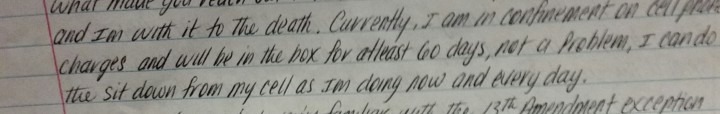 what made you reach
and Im with it to the death. Currently, I am in confinement on cell phone
charges and will be in the box for atleast 60 days, not a problem, I can do
the sit down from my cell as Im doing now and every day.
familiar with the 13th Amendment exception